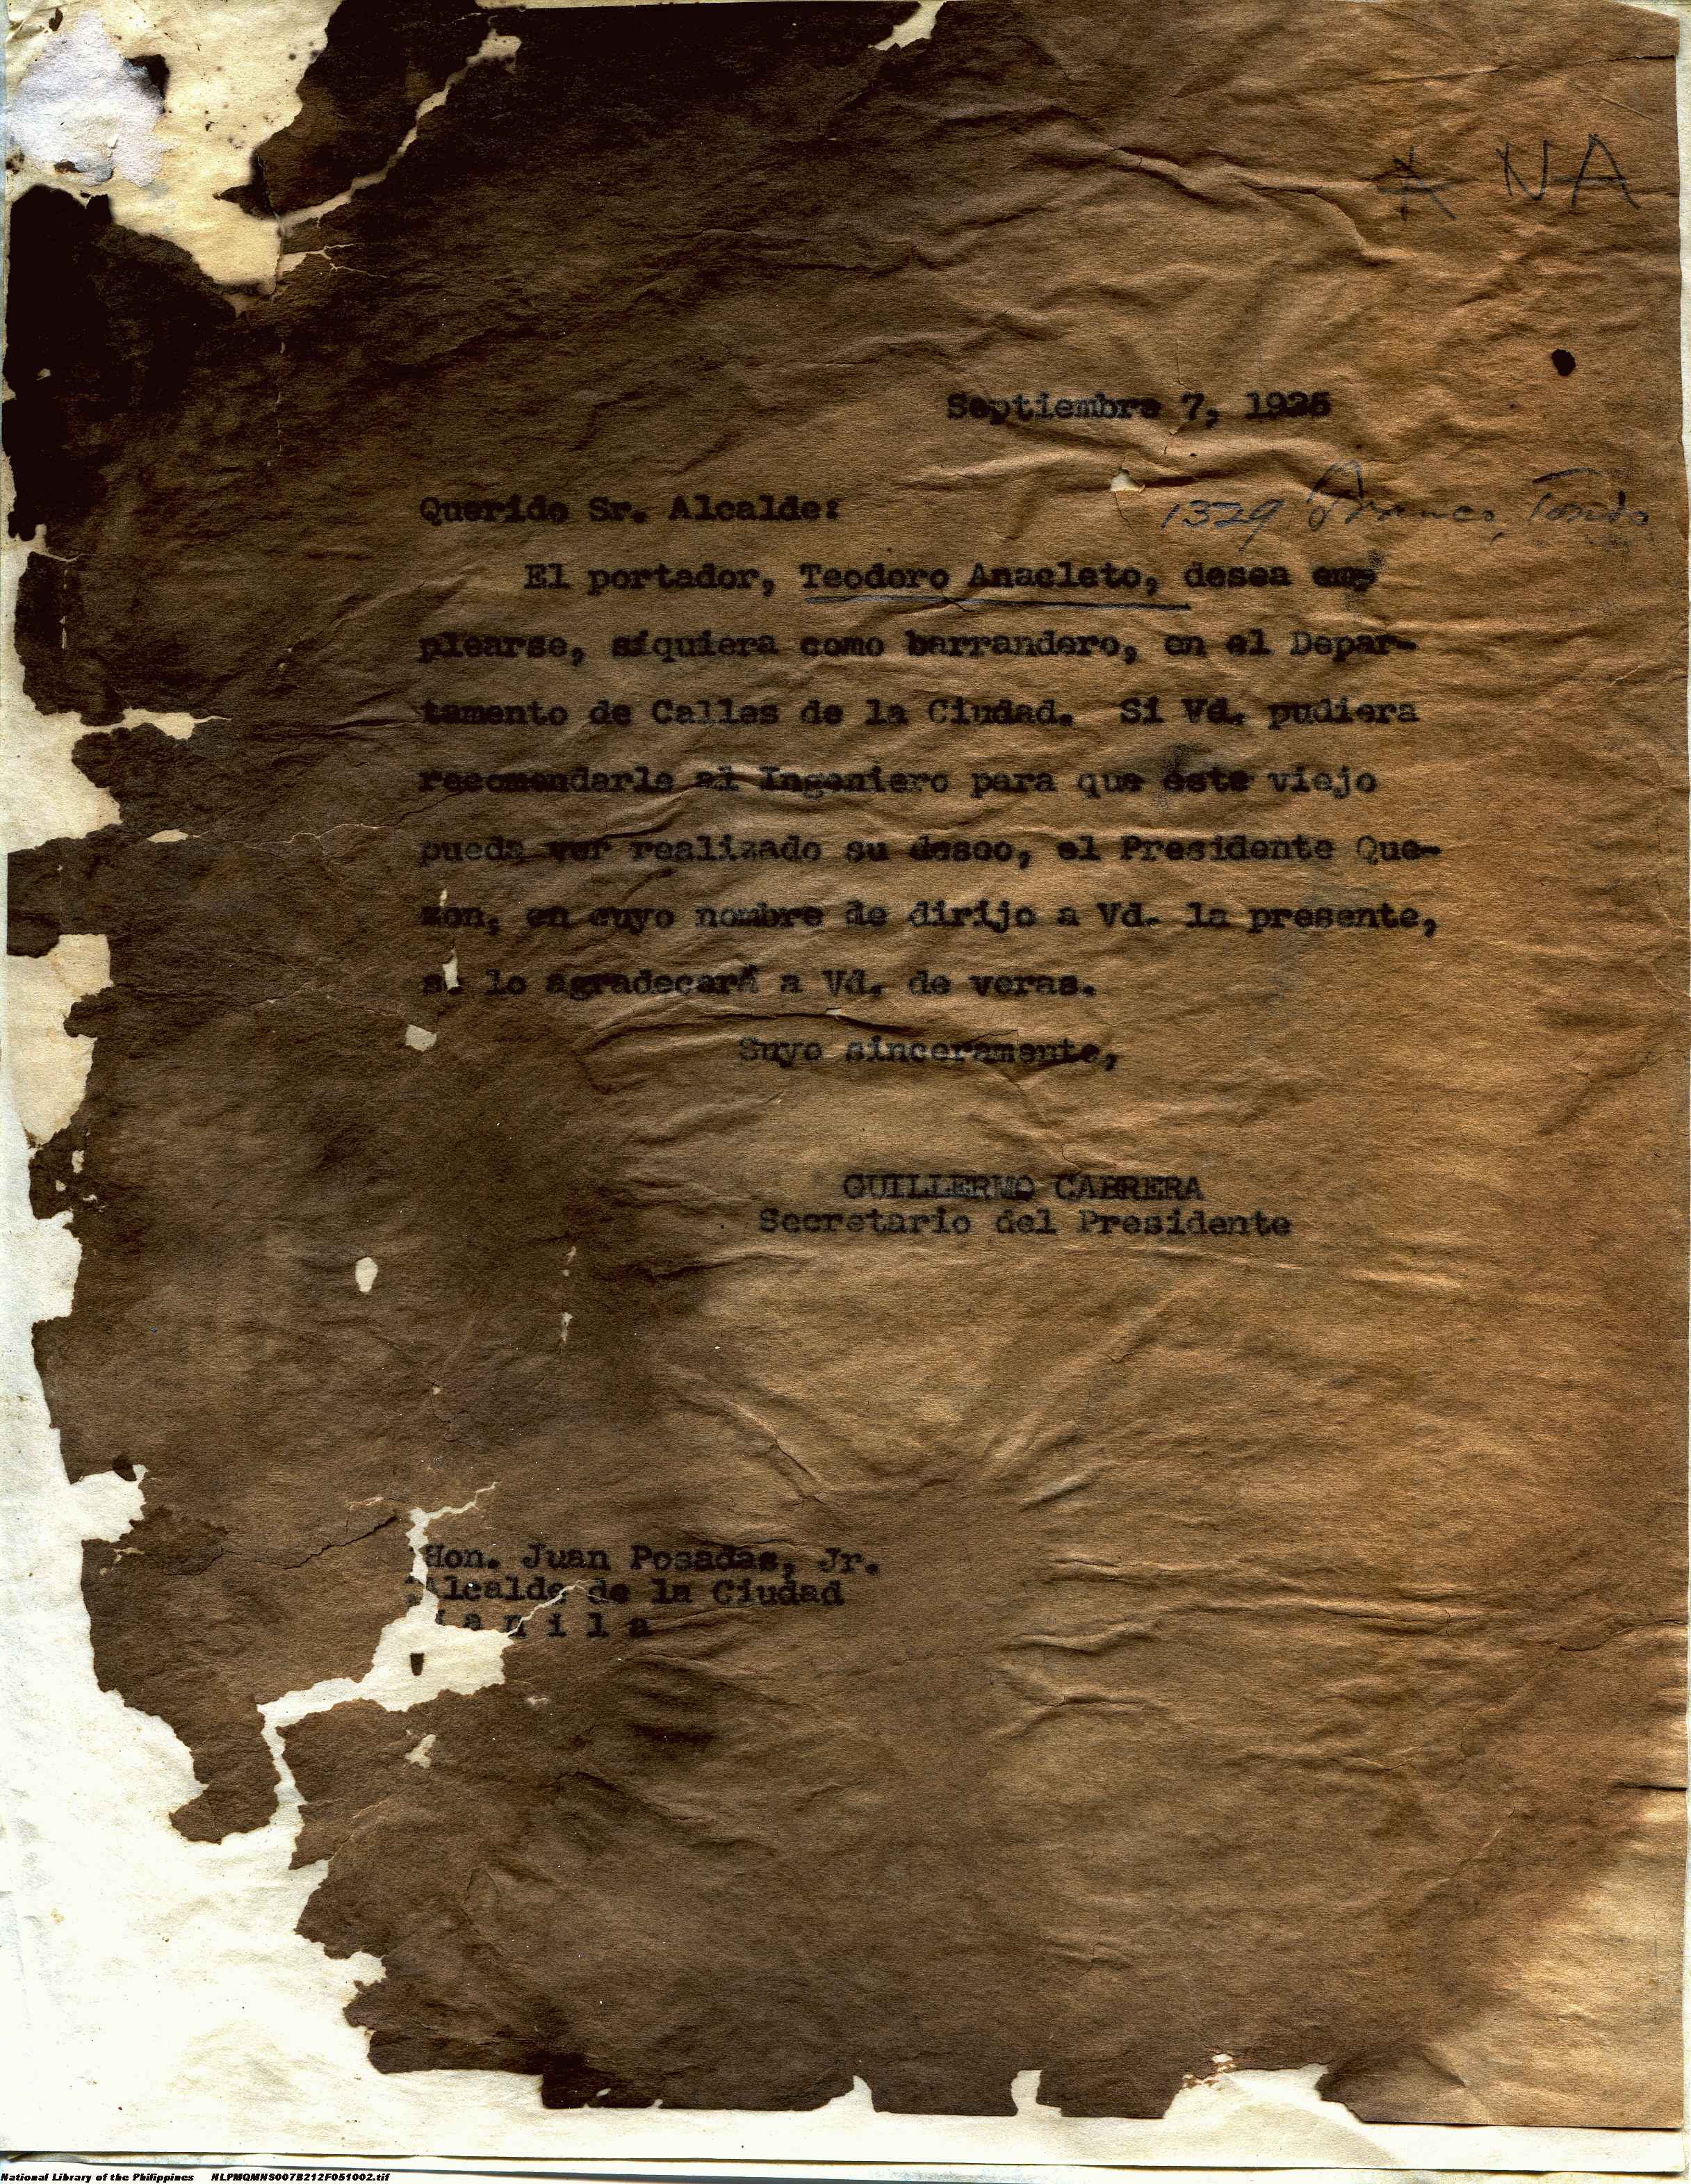 A NA
Septiembre 7, 1935
Querido Sr. Alcalde:
1329 Franco, Tondo
El portador, Teodoro Anacleto, desea em-
plearse, siquiera como barrandero, en el Depar-
tamento de Calles de la Ciudad. Si Vd. pudiera
recomendarle al Ingeniero para que este viejo
pueda ver realizado su deseo, el Presidente Que-
zon, en cuyo nombre de dirijo a Vd. la presente,
se lo agradecerá a Vd. de veras.
Suyo sinceramente,
GUILLERMO CABRERA
Secretario del Presidente
Hon. Juan Posadas, Jr.
Alcalde de la Ciudad
M a n i l a
National Library of the Philippines NLPMQMNS007B212F051002.tif